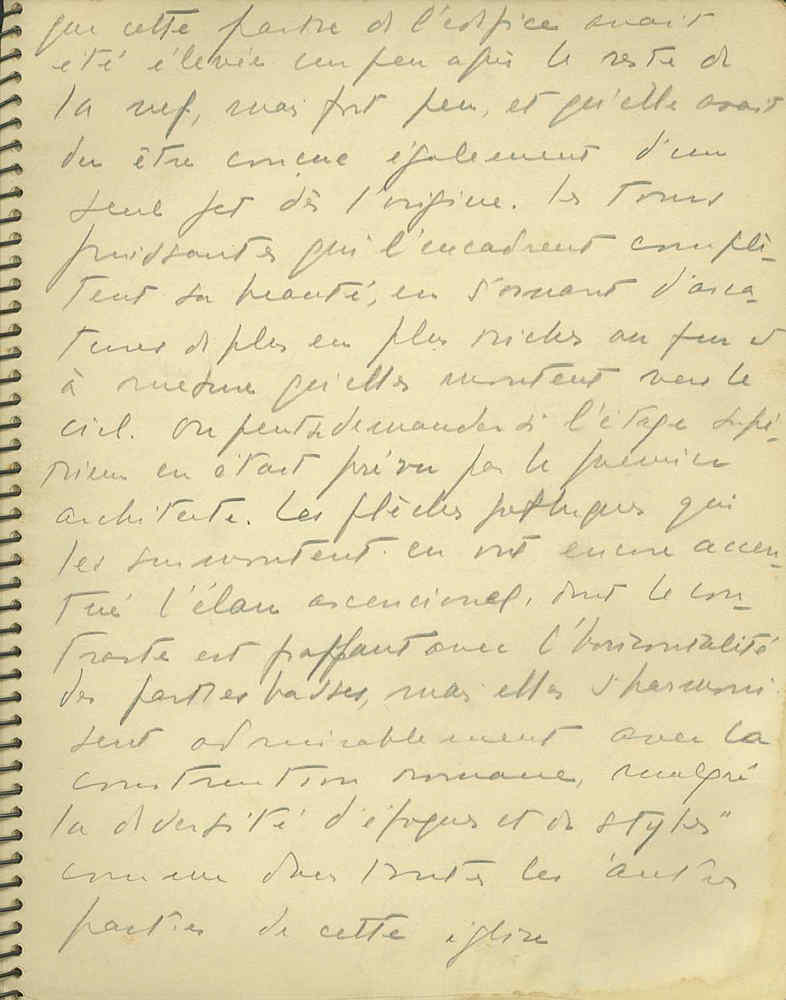 que cette partie de l'édifice avait
été élevée un peu après le reste de
la nef, mais fort peu, et qu'elle avait
du être conçue également d'un
seul jet dès l'origine. Les tours
puissantes qui l'encadrent complè-
tent sa beauté, en s'ornant d'arca-
tures de plus en plus riches au fur et
à mesure qu'elles montent vers le
ciel. On peut se demander si l'étage supé-
rieur en était prévu par le premier
architecte. Les flèches gothiques qui
les surmontent en ont encore accen-
tué l'élan ascencionel, dont le con-
traste est frappant avec l'horizontalité
des parties basses, mais elles s'harmoni
sent admirablement avec la
construction romane, malgré
la diversité d'époques et de styles"
comme dans toutes les autres
parties de cette église